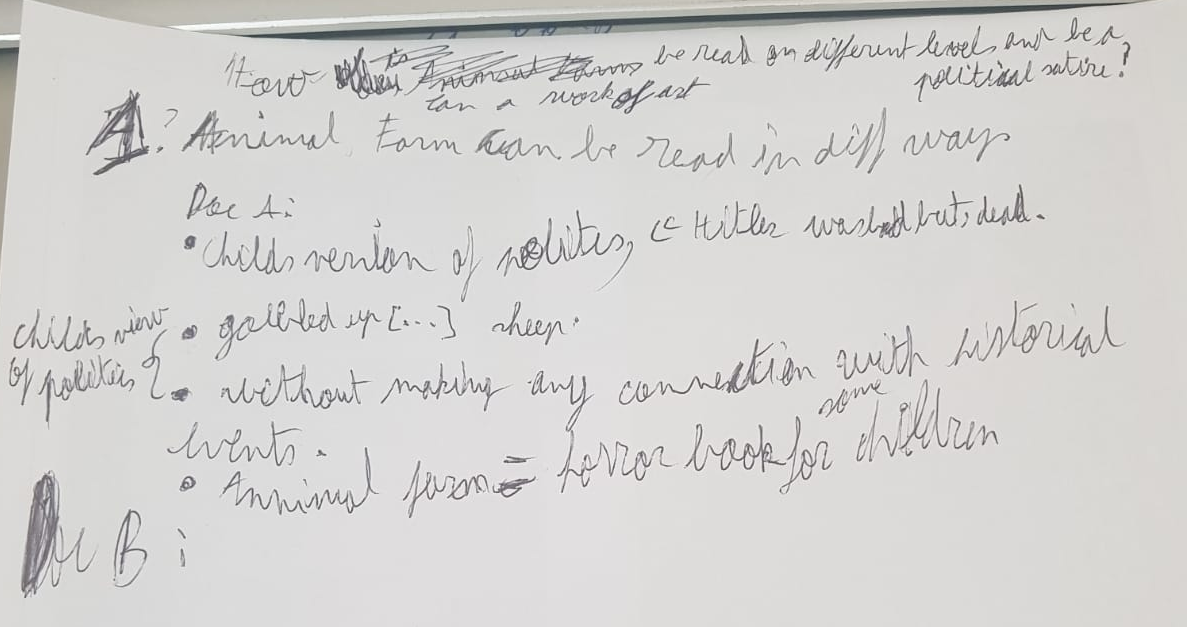 How can a work of art be read on different levels and be a political satire?
A? Animal Farm can be read in diff ways
Doc A:
• Childs version of politics, "Hitler was bad but, dead.
• gobbled up [...] sheep.
Childs view of politics
• without making any connection with historical
events.
• Annimal farm = horror book for some children
Doc B :